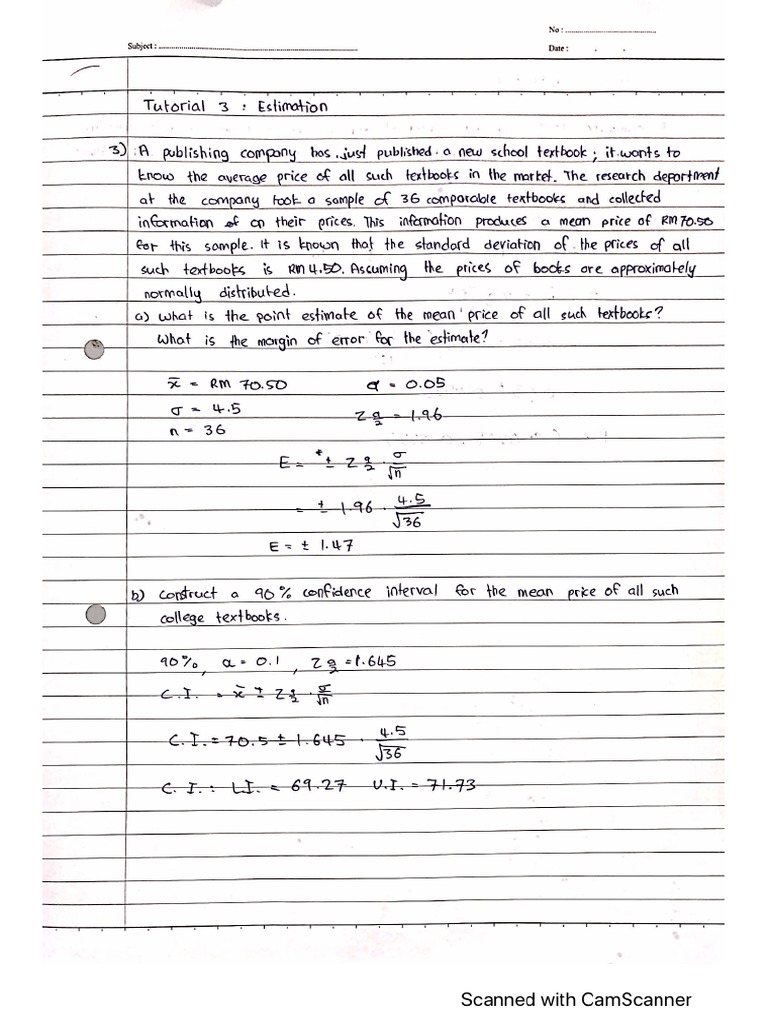 No :
Subject :
Date :
Tutorial 3 : Estimation
3) A publishing company has just published a new school textbook ; it wants to
know the average price of all such textbooks in the market. The research department
at the company took a sample of 36 comparable textbooks and collected
information of on their prices. This information produces a mean price of RM 70.50
for this sample. It is known that the standard deviation of the prices of all
such textbooks is RM 4.50. Assuming the prices of books are approximately
normally distributed.
a) What is the point estimate of the mean price of all such textbooks?
What is the margin of error for the estimate?
x̄ = RM 70.50 α = 0.05
σ = 4.5 Z α/2 = 1.96
n = 36
E = ± Z α/2 · σ/√n
= ± 1.96 · 4.5/√36
E = ± 1.47
b) Construct a 90% confidence interval for the mean price of all such
college textbooks.
90%, α = 0.1 , Z α/2 = 1.645
C.I. = x̄ ± Z α/2 · σ/√n
C.I. = 70.5 ± 1.645 · 4.5/√36
C.I. : L.I. = 69.27 U.I. = 71.73
Scanned with CamScanner